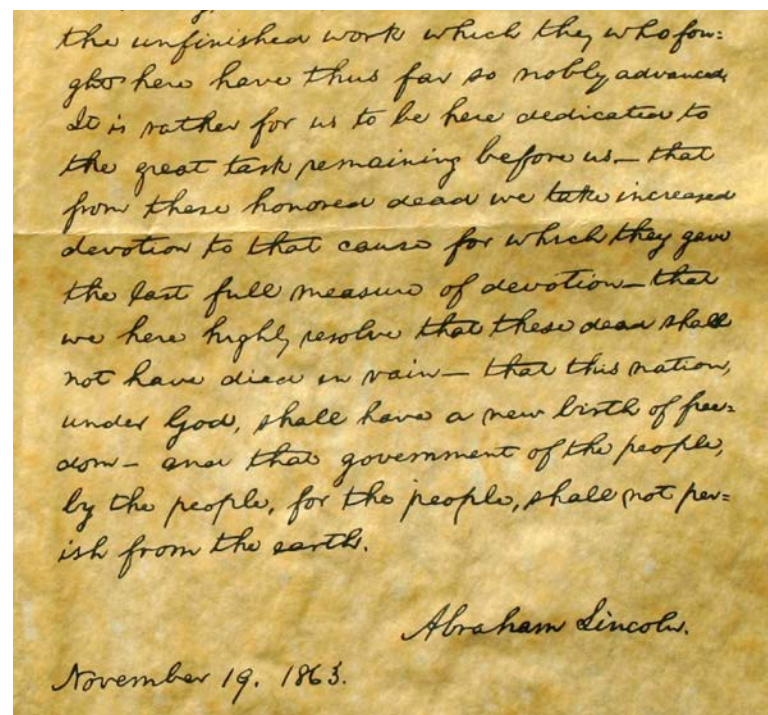 the unfinished work which they who fou=
ght here have thus far so nobly advanced.
It is rather for us to be here dedicated to
the great task remaining before us— that
from these honored dead we take increased
devotion to that cause for which they gave
the last full measure of devotion— that
we here highly resolve that these dead shall
not have died in vain— that this nation,
under God, shall have a new birth of free=
dom— and that government of the people,
by the people, for the people, shall not per=
ish from the earth.
Abraham Lincoln.
November 19. 1863.